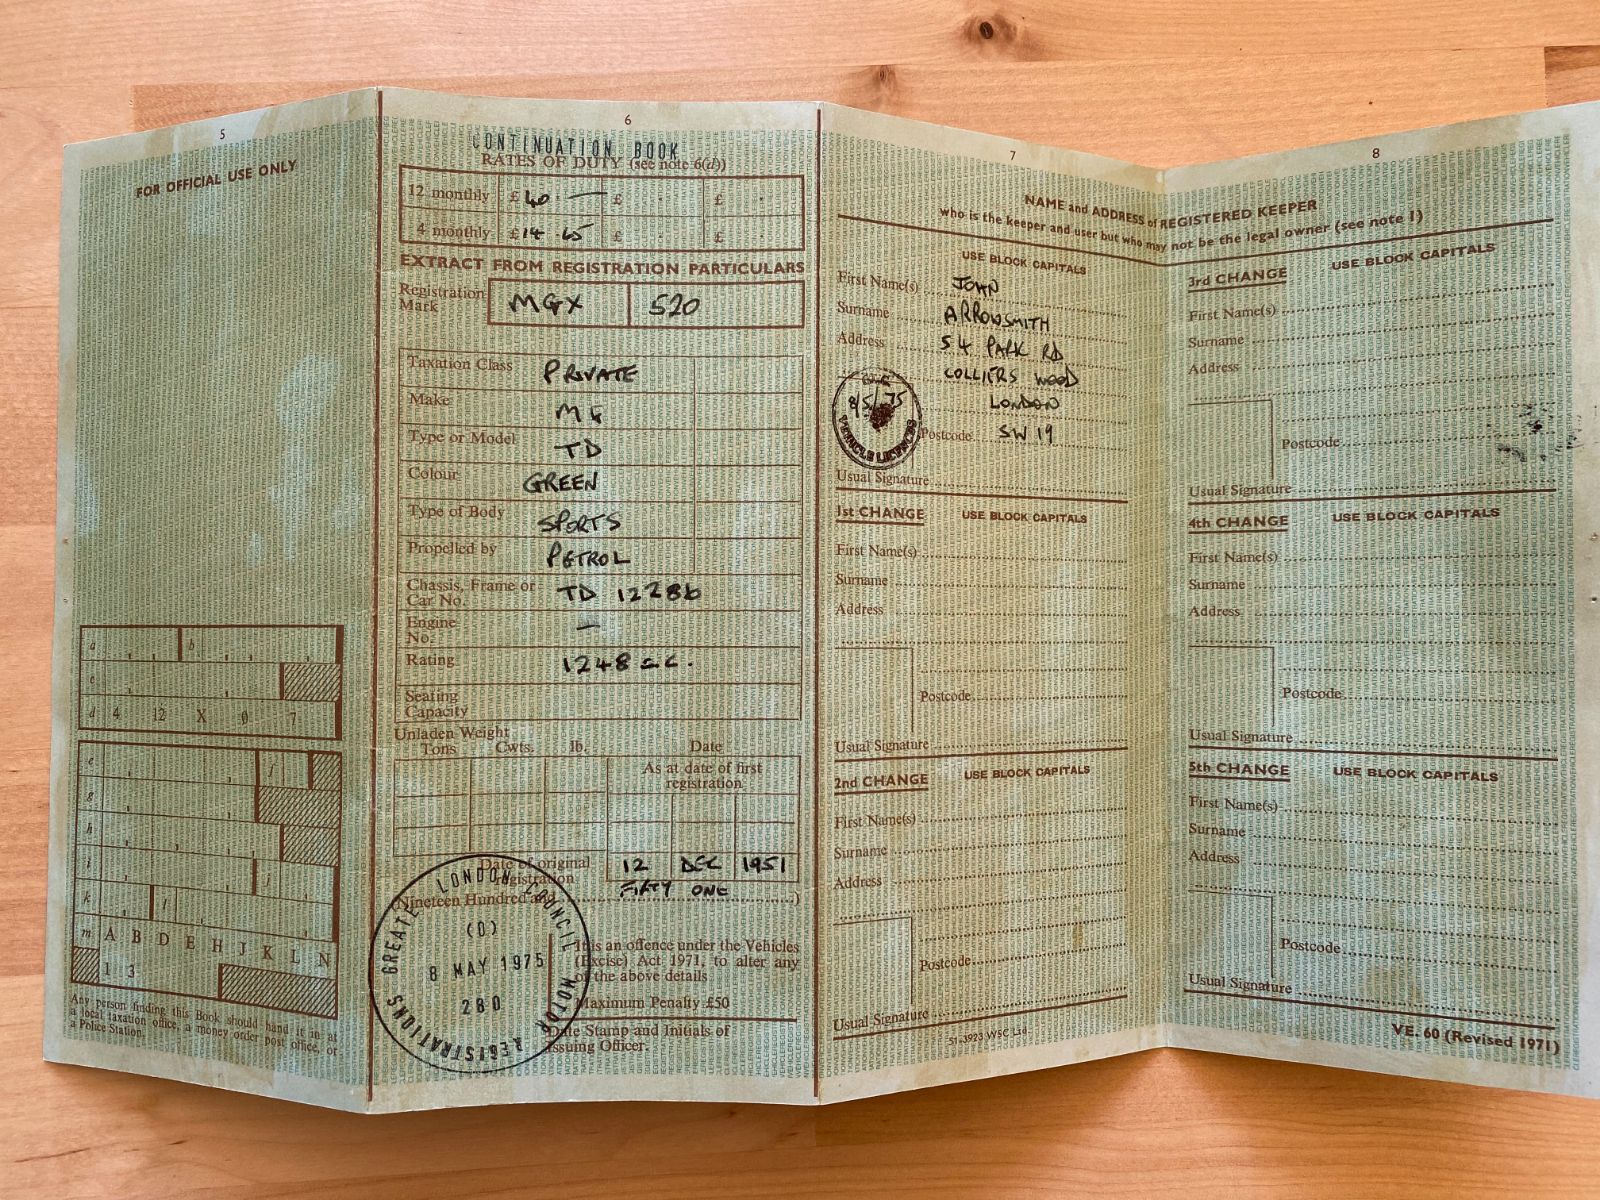 5
FOR OFFICIAL USE ONLY
a b
c
d 4 12 X 0 7
e f
g
h
i j
k l
m A B D E H J K L N
1 3
Any person finding this Book should hand it in at
a local taxation office, a money order post office, or
a Police Station.
6
CONTINUATION BOOK
RATES OF DUTY (see note 6(d))
12 monthly £ 40 · — £ · £ ·
4 monthly £ 14 · 65 £ · £ ·
EXTRACT FROM REGISTRATION PARTICULARS
Registration
Mark MGX 520
Taxation Class PRIVATE
Make MG
Type or Model TD
Colour GREEN
Type of Body SPORTS
Propelled by PETROL
Chassis, Frame or
Car No. TD 12286
Engine
No. —
Rating 1248 c.c.
Seating
Capacity
Unladen Weight
Tons Cwts. lb. Date
As at date of first
registration
Date of original
registration 12 DEC 1951
(Nineteen Hundred and FIFTY ONE )
GREATER LONDON COUNCIL MOTOR REGISTRATIONS
(D)
8 MAY 1975
280
It is an offence under the Vehicles
(Excise) Act 1971, to alter any
of the above details
Maximum Penalty £50
Date Stamp and Initials of
Issuing Officer.
7
8
NAME and ADDRESS of REGISTERED KEEPER
who is the keeper and user but who may not be the legal owner (see note 1)
USE BLOCK CAPITALS
First Name(s) JOHN
Surname ARROWSMITH
Address 54 PARK RD
COLLIERS WOOD
LONDON
Postcode SW 19
8/5/75
VEHICLE LICENCES
Usual Signature
1st CHANGE USE BLOCK CAPITALS
First Name(s)
Surname
Address
Postcode
Usual Signature
2nd CHANGE USE BLOCK CAPITALS
First Name(s)
Surname
Address
Postcode
Usual Signature
51-3923 WSC Ltd.
3rd CHANGE USE BLOCK CAPITALS
First Name(s)
Surname
Address
Postcode
Usual Signature
4th CHANGE USE BLOCK CAPITALS
First Name(s)
Surname
Address
Postcode
Usual Signature
5th CHANGE USE BLOCK CAPITALS
First Name(s)
Surname
Address
Postcode
Usual Signature
VE. 60 (Revised 1971)